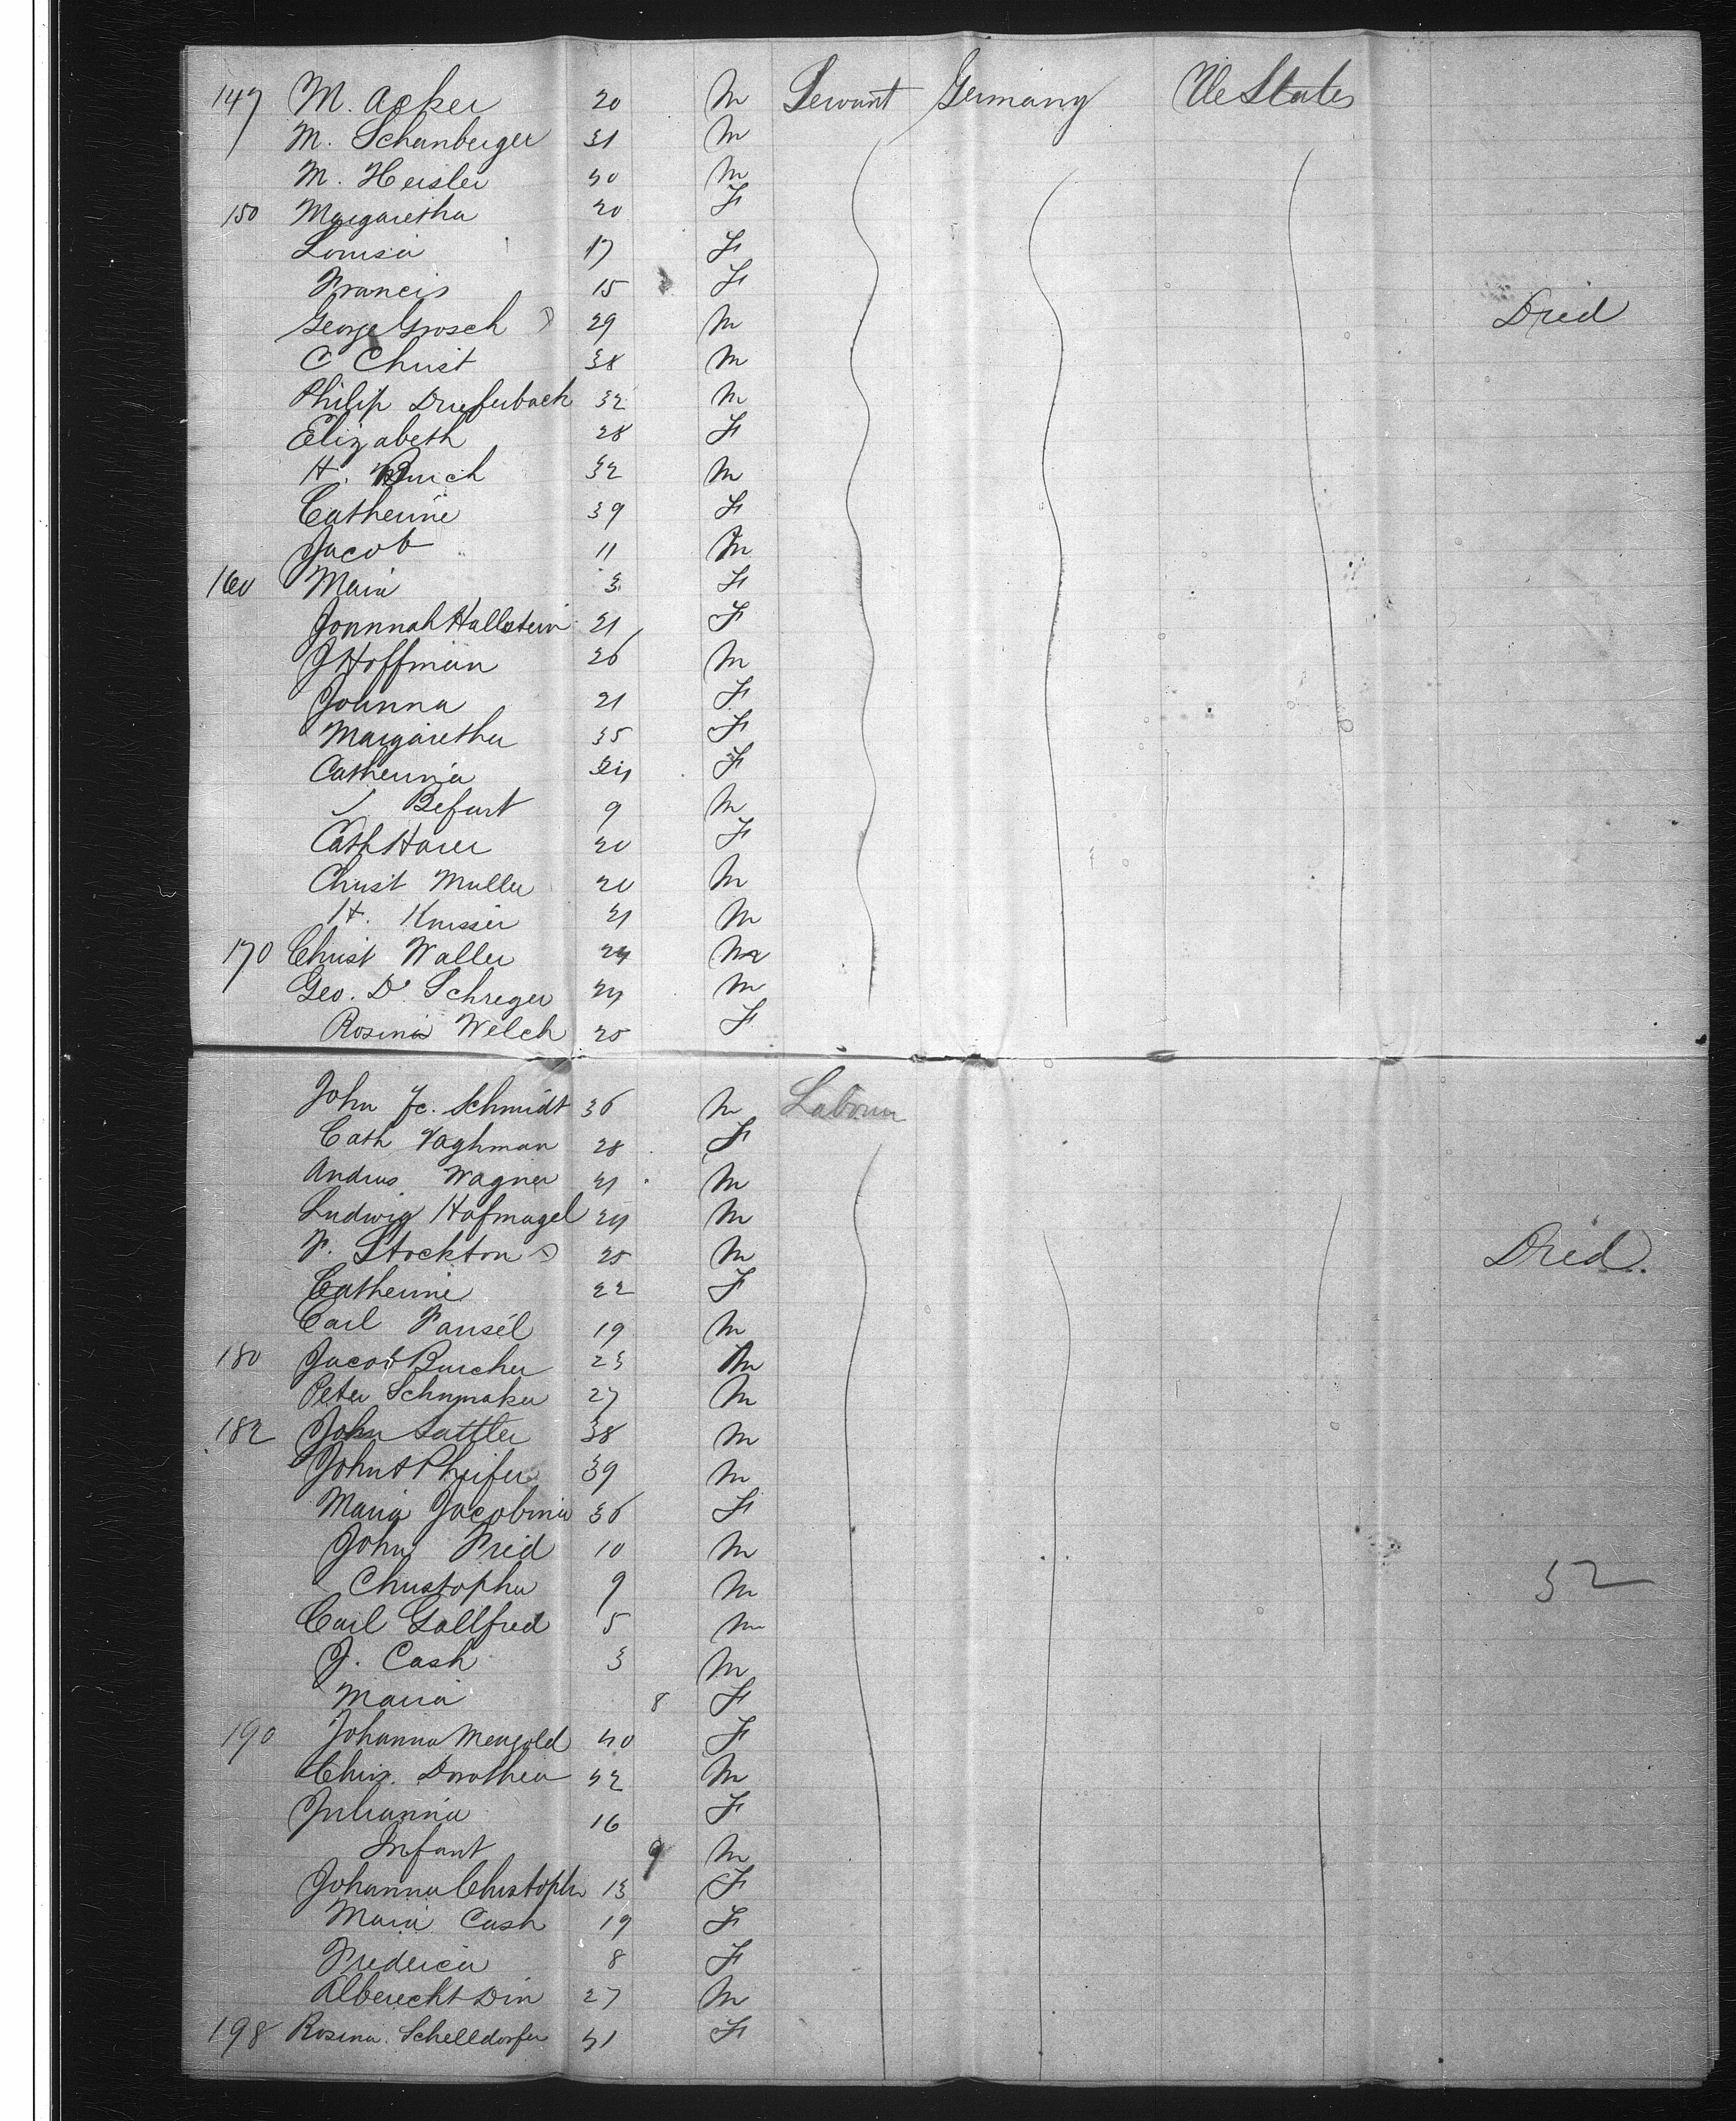 147 M. Acker 20 M Servant Germany Ue States
M. Schanberger 31 M
M. Heisler 40 M
150 Margaretha 20 F
Louisa 17 F
Francis 15 F
George Grosch 29 M Died
C Christ 38 M
Philip Drieferbach 32 M
Elizabeth 28 F
H. 32 M
Catherine 39 F
Jacob 11 M
160 Maria 3 F
Jonnnah Hallstein 21 F
J Hoffman 26 M
Johanna 21 F
Margaretha 35 F
Catherina F
J Befurt 9 M
Cath Harer 20 F
Christ Muller 20 M
H. 21 M
170 Christ Waller 24 M
Geo. D Schreger 24 M
Rosina Welch 25 F
John Fc. Schmidt 36 M Labourer
Cath Vaghman 28 F
Andrus Wagner 21 M
Ludwig Hofmagel 24 M
F. Stockton 25 M Died.
Catherine 22 F
Carl Fansel 19 M
180 Jacob Burcher 23 M
Peter Schumaker 27 M
182 John Sattler 38 M
John A Pheifer 39 M
Maria Jacobina 36 F
John Fried 10 M
Christopher 9 M 52
Carl Gallfried 5 M
J. Cash 3 M
Maria 8 F
190 Johanna Mengold 40 F
Chris. Dorothea 42 M
Julianna 16 F
Infant 9 M
Johanna Christoph 13 F
Maria Cash 19 F
Frederica 8 F
Alberecht Din 27 M
198 Rosina Schelldorfer 41 F